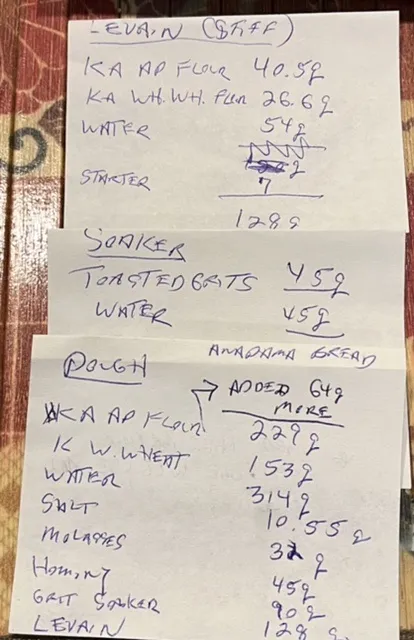 LEVAIN (STIFF)
KA AP FLOUR 40.5g
KA WH.WH. FLUR 26.6g
WATER 54g
STARTER 7
128g
SOAKER
TOASTED GRITS 45g
WATER 45g
ANADAMA BREAD
DOUGH
→ ADDED 64g
MORE
KA AP FLOUR 229g
K W. WHEAT 153g
WATER 314g
SALT 10.55g
MOLASSES 32g
HOMINY 45g
GRIT SOAKER 90g
LEVAIN 128g